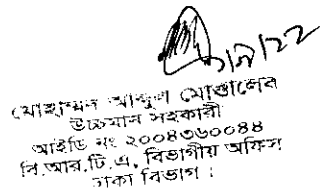 ২/৯/২২
মোহাম্মদ আব্দুল মোত্তালেব
উচ্চমান সহকারী
আইডি নং ২০০৪৩৬০০৪৪
বি.আর.টি.এ, বিভাগীয় অফিস
ঢাকা বিভাগ।